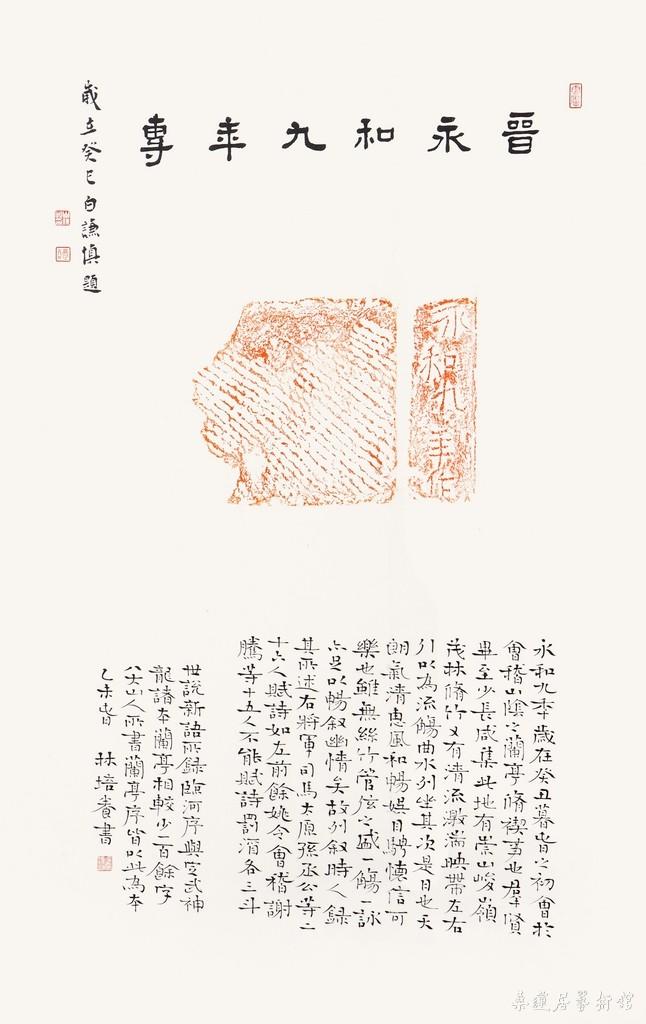 晉永和九年專
歲在癸巳白謙慎題
永和九年作
永和九年歲在癸丑暮春之初會於
會稽山陰之蘭亭脩禊事也羣賢
畢至少長咸集此地有崇山峻嶺
茂林脩竹又有清流激湍映帶左右
引以為流觴曲水列坐其次是日也天
朗氣清惠風和暢娛目騁懷信可
樂也雖無絲竹管弦之盛一觴一詠
亦足以暢敘幽情矣故列敘時人錄
其所述右將軍司馬太原孫丞公等二
十六人賦詩如左前餘姚令會稽謝
騰等十五人不能賦詩罰酒各三斗
世說新語所錄臨河序與定武神
龍諸本蘭亭相較少二百餘字
八大山人所書蘭亭序皆以此為本
乙未春 林培養書
桑蓮居藝術館